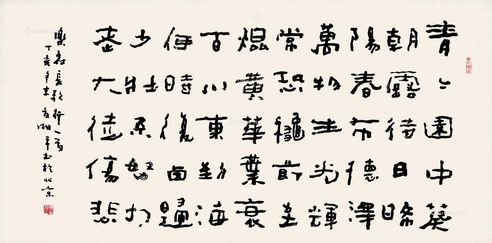 青〻園中葵
朝露待日晞
陽春布德澤
萬物生光輝
常恐龝節至
焜黃華葉衰
百川東到海
何時復西歸
少壯不努力
老大徒傷悲
樂府長歌行一首
丁亥年 書於北京